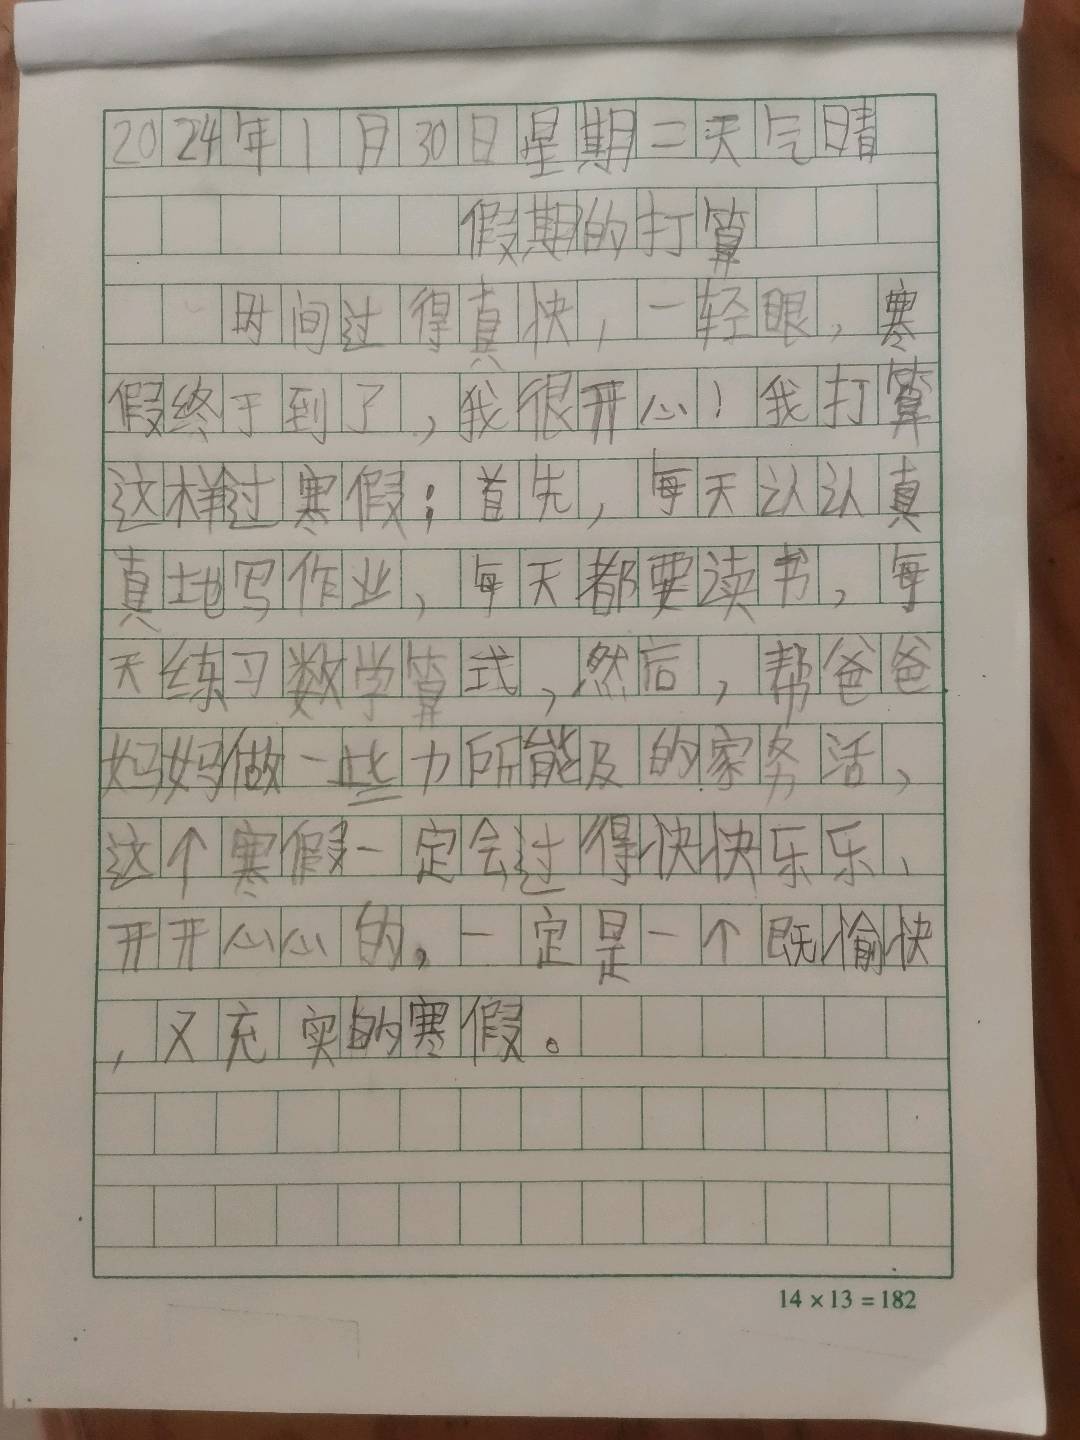 2024年1月30日星期二天气晴
假期的打算
时间过得真快，一轻眼，寒
假终于到了，我很开心！我打算
这样过寒假；首先，每天认认真
真地写作业，每天都要读书，每
天练习数学算式，然后，帮爸爸
妈妈做一些力所能及的家务活，
这个寒假一定会过得快快乐乐、
开开心心的，一定是一个既愉快
，又充实的寒假。
14×13=182